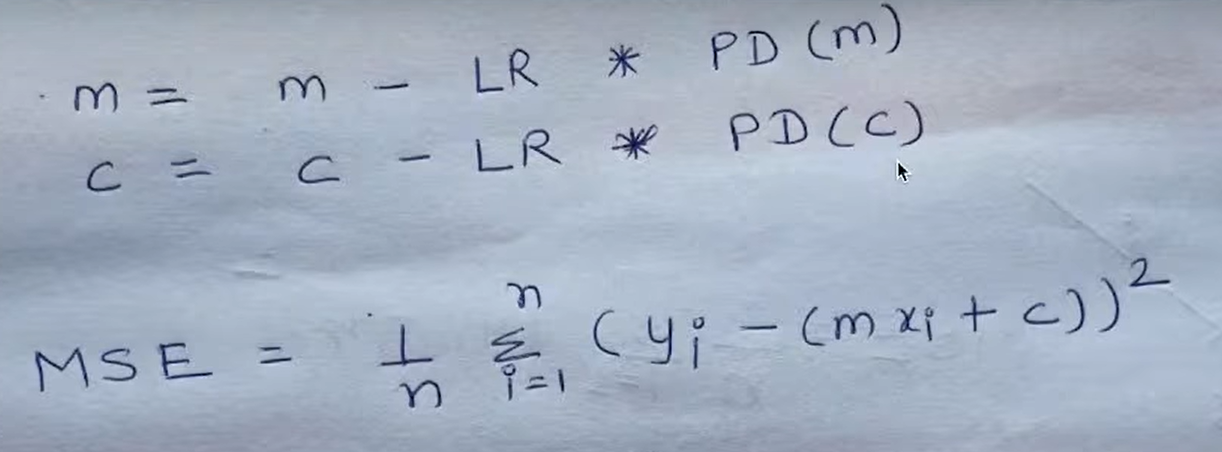 m = m - LR * PD (m)
c = c - LR * PD (c)
MSE = 1/n Σ^n_{i=1} (yi - (m xi + c))^2